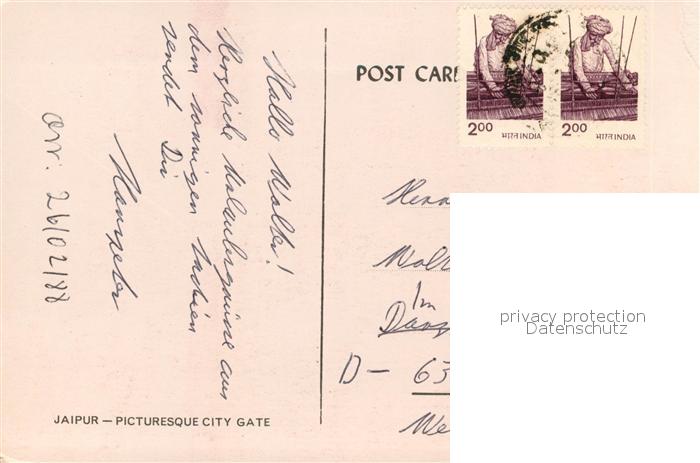 Hallo Walter!
Herzliche Urlaubergrüsse aus
dem sonnigen Indien
sendet Dir
Hanspeter
arr. 26/02/88
POST CAR
2.00 भारत INDIA
2.00 भारत INDIA
Herrn
Walt
Im
D - 63
We
privacy protection
Datenschutz
JAIPUR – PICTURESQUE CITY GATE